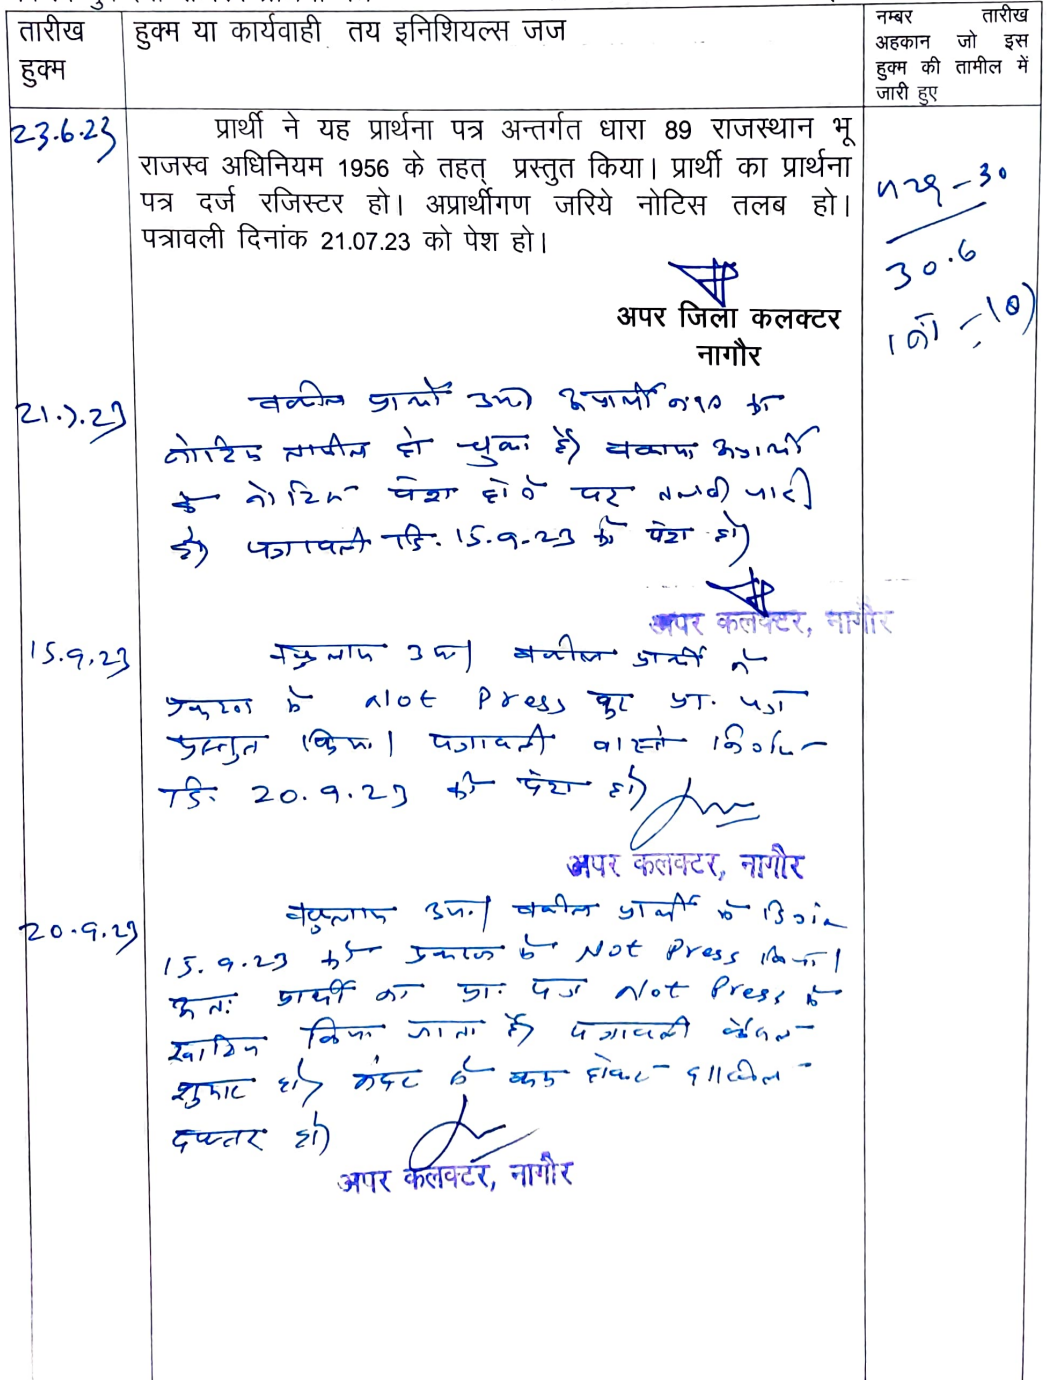 तारीख हुक्म
हुक्म या कार्यवाही तय इनिशियल्स जज
नम्बर तारीख
अहकान जो इस
हुक्म की तामील में
जारी हुए
23.6.23
प्रार्थी ने यह प्रार्थना पत्र अन्तर्गत धारा 89 राजस्थान भू
राजस्व अधिनियम 1956 के तहत् प्रस्तुत किया। प्रार्थी का प्रार्थना
पत्र दर्ज रजिस्टर हो। अप्रार्थीगण जरिये नोटिस तलब हो।
पत्रावली दिनांक 21.07.23 को पेश हो।
30
30.6
अपर जिला कलक्टर
नागौर
21.7.23
वकील प्रार्थी उप। अप्रार्थी को
नोटिस तामील हो चुका है। अप्रार्थी
के नोटिस पेश होने पर तलबी जारी
हो। पत्रावली दि. 15.9.23 को पेश हो।
अपर कलक्टर, नागौर
15.9.23
वकुलाय उप। वकील प्रार्थी ने
प्रकरण के Not Press का प्रा. पत्र
प्रस्तुत किया। पत्रावली वास्ते निर्णय
दि. 20.9.23 को पेश हो।
अपर कलक्टर, नागौर
20.9.23
वकुलाय उप.। वकील प्रार्थी ने दिनांक
15.9.23 को प्रकरण के Not Press किया।
अतः प्रार्थी का प्रा. पत्र Not Press के
खारिज किया जाता है। पत्रावली फैसल
शुमार हो। नंबर से कम होकर दाखिल
दफ्तर हो।
अपर कलक्टर, नागौर